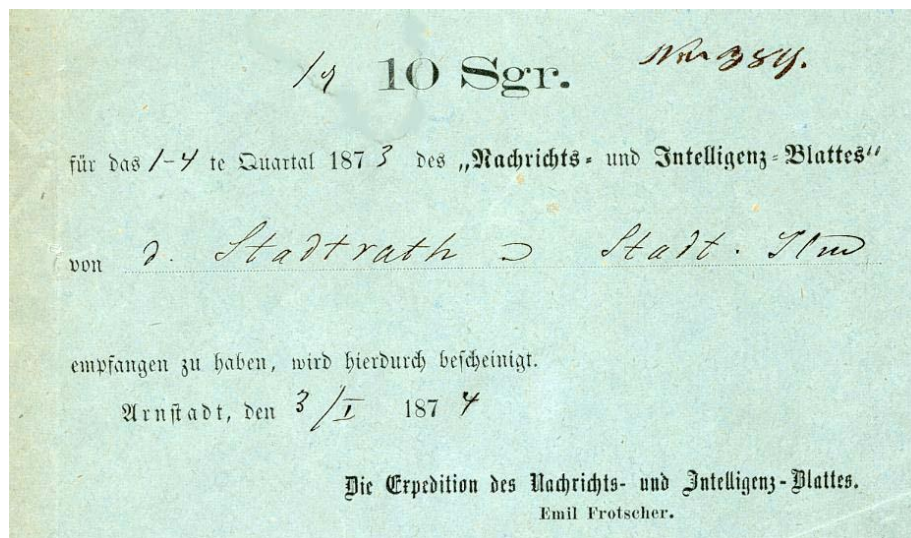 10 Sgr.
für das 1-4 te Quartal 1873 des „Nachrichts- und Intelligenz-Blattes“
von d. Stadtrath Stadt. Ilm
empfangen zu haben, wird hierdurch bescheinigt.
Arnstadt, den 3/I 1874
Die Expedition des Nachrichts- und Intelligenz-Blattes.
Emil Frotscher.